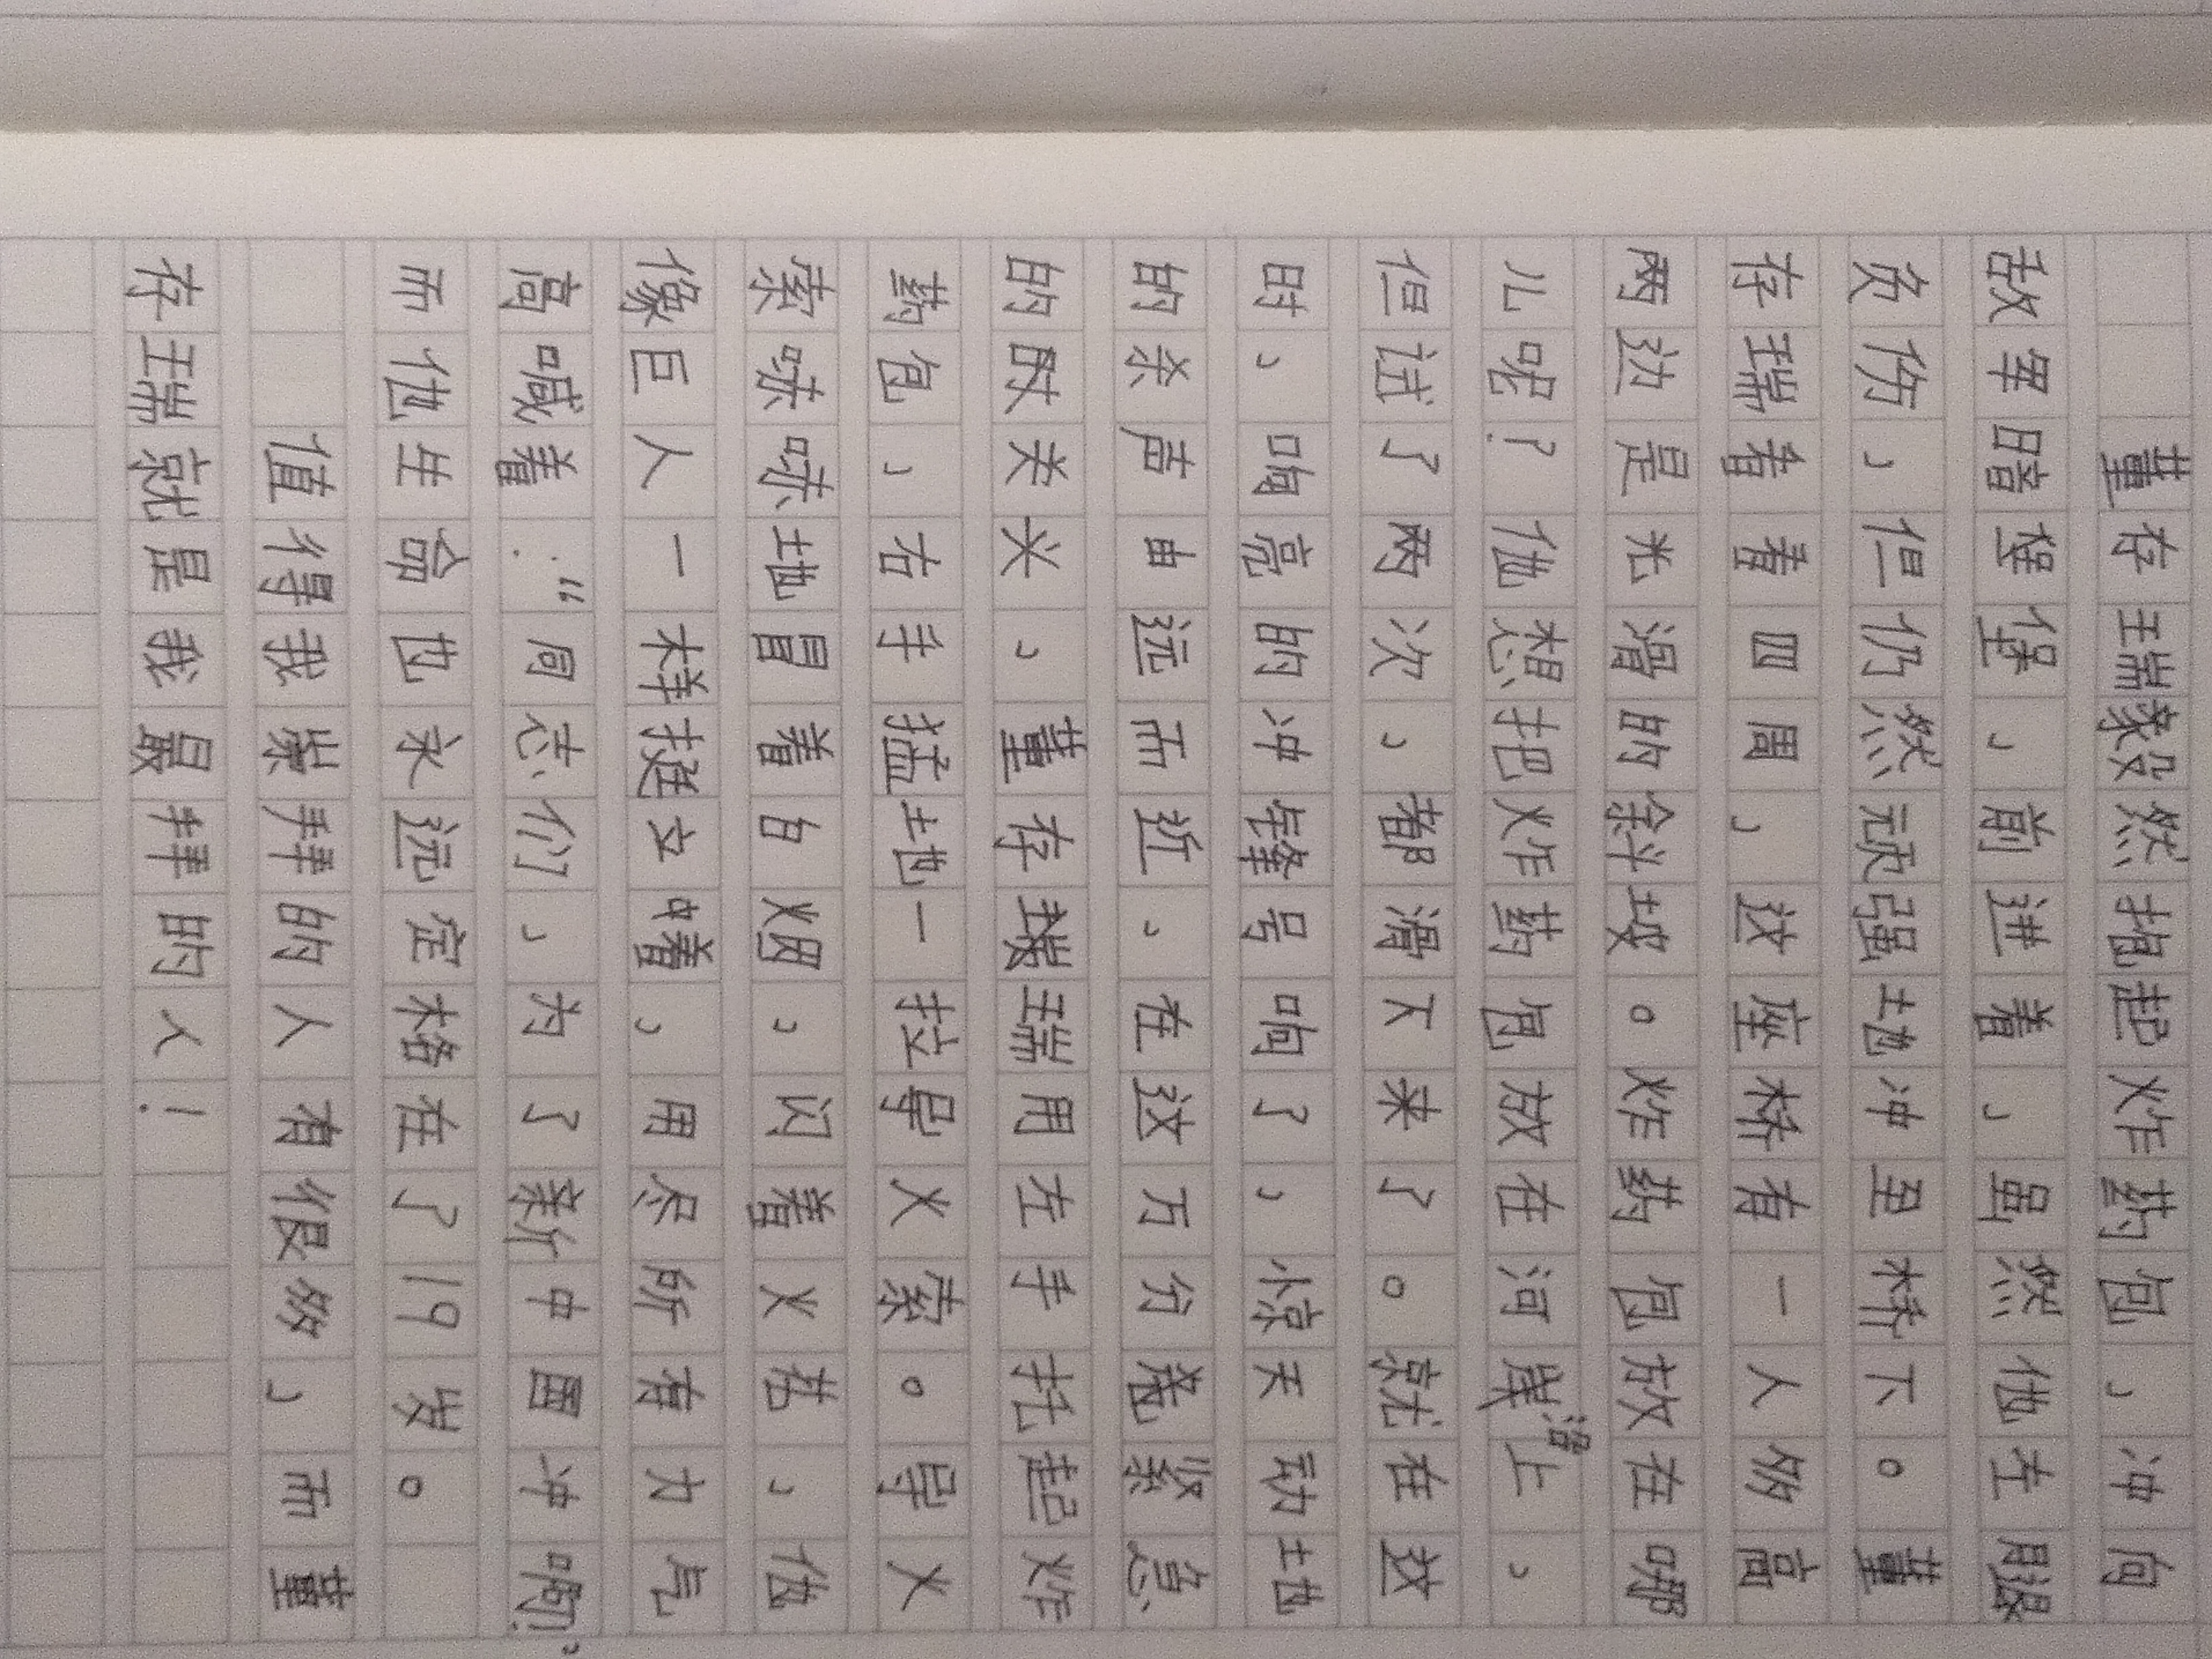 董存瑞毅然抱起炸药包，冲向
敌军暗堡堡，前进着，虽然他左腿
负伤，但仍然顽强地冲至桥下。董
存瑞看着四周，这座桥有一人多高
两边是光滑的斜坡。炸药包放在哪
儿呢？他想把炸药包放在河床沿上，
但试了两次，都滑下来了。就在这
时，响亮的冲锋号响了，惊天动地
的杀声由远而近，在这万分危紧急
的时关头，董存瑞用左手托起炸
药包，右手猛地一拉导火索。导火
索哧哧地冒着白烟，闪着火花，他
像巨人一样挺立着，用尽所有力气
高喊着：“同志们，为了新中国冲啊！”
而他生命也永远定格在了19岁。
值得我崇拜的人有很多，而董
存瑞就是我最拜的人！